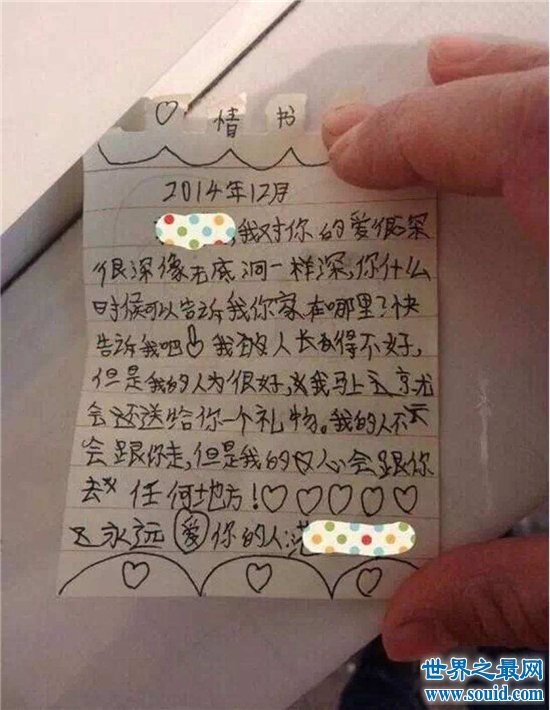 ♡情书
2014年12月
,我对你的爱很深
很深像无底洞一样深,你什么
时候可以告诉我你家在哪里?快
告诉我吧 我的人长得不好,
但是我的人为很好,我马上就
会还送给你一个礼物。我的人不
会跟你走,但是我的心会跟你
去任何地方!♡♡♡♡♡
永远爱你的人:
♡ ♡ ♡
世界之最网
www.souid.com